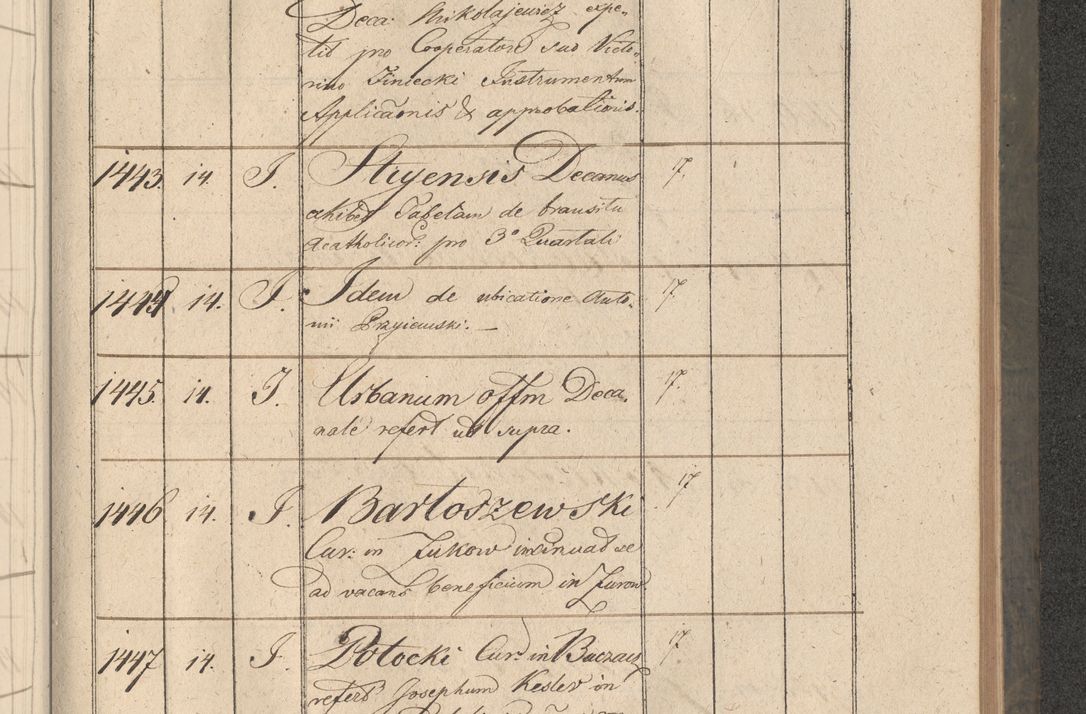 Deca: Mikolajewicz expe-
tit pro Cooperatore suo Victo-
rino Finiecki Instrumentum
Applicaōnis & approbationis.
1443. 14. J. Stryensis Decanus 17.
exhibet Tabelam de transitu
acatholicor: pro 3º Quartali
1444 14. J. Idem de ubicatione Anto- 17.
nii Przyiemski. —
1445. 14. J. Urbanum offm Deca- 17.
nale refert ut supra.
1446 14. J. Bartoszewski 17
Cur: in Zukow insinuat se
ad vacans beneficium in Zurow.
1447 14. J. Potocki Cur: in Buczacz 17.
refert Josephum Kesler in